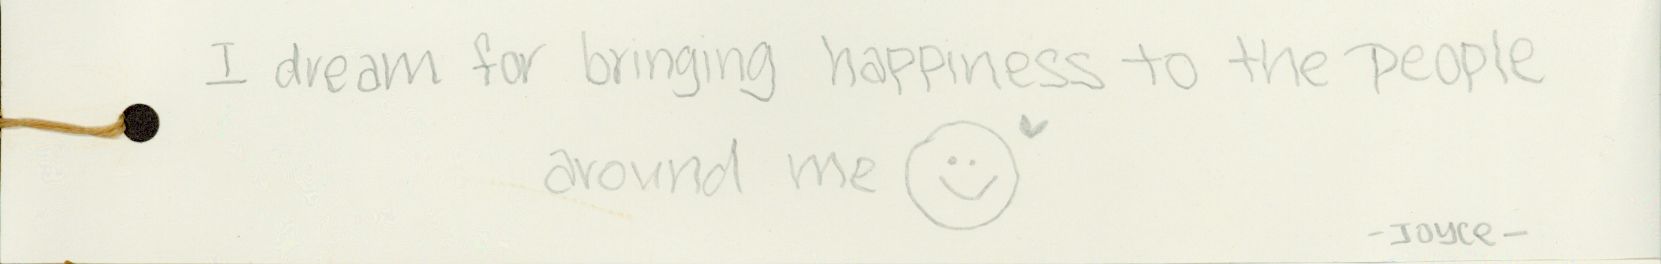 I dream for bringing happiness to the people
around me
-Joyce-